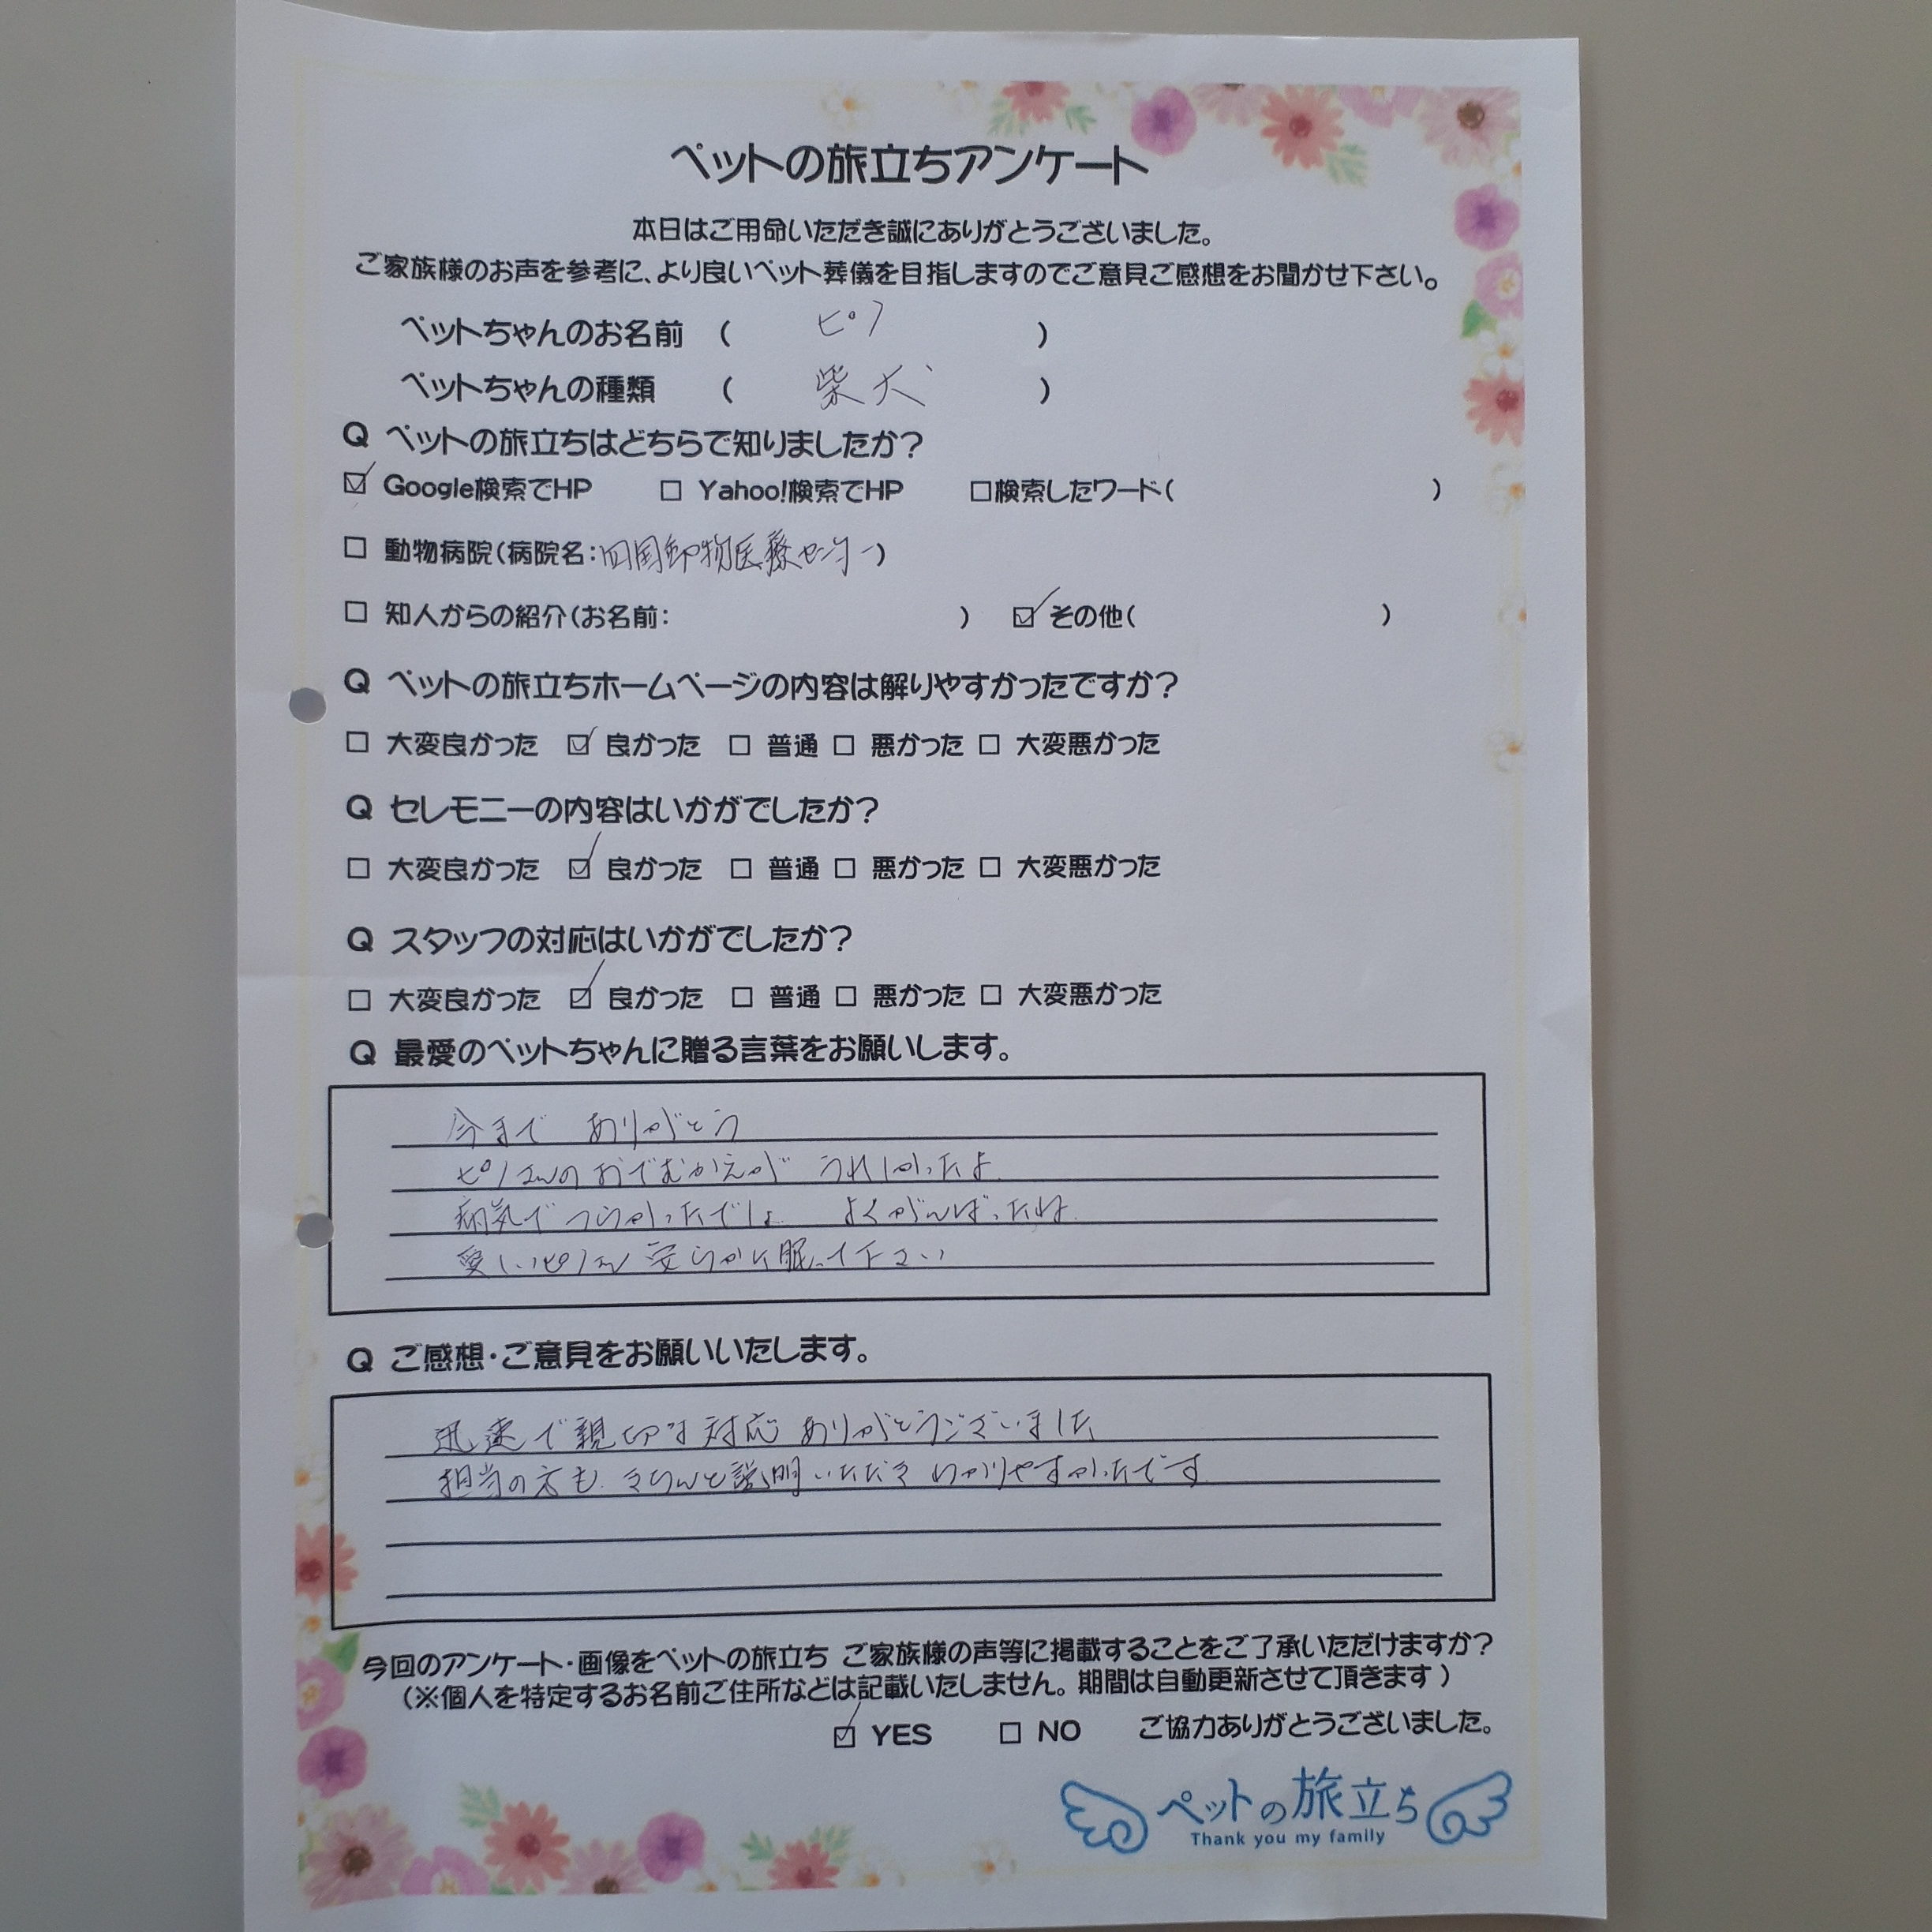 ペットの旅立ちアンケート
本日はご用命いただき誠にありがとうございました。
ご家族様のお声を参考に、より良いペット葬儀を目指しますのでご意見ご感想をお聞かせ下さい。
ペットちゃんのお名前 ( ピノ )
ペットちゃんの種類 ( 柴犬 )
Q ペットの旅立ちはどちらで知りましたか?
☑ Google検索でHP □ Yahoo!検索でHP □検索したワード( )
□ 動物病院(病院名:四国動物医療センター)
□ 知人からの紹介(お名前: ) ☑ その他( )
Q ペットの旅立ちホームページの内容は解りやすかったですか?
□ 大変良かった ☑ 良かった □ 普通 □ 悪かった □ 大変悪かった
Q セレモニーの内容はいかがでしたか?
□ 大変良かった ☑ 良かった □ 普通 □ 悪かった □ 大変悪かった
Q スタッフの対応はいかがでしたか?
□ 大変良かった ☑ 良かった □ 普通 □ 悪かった □ 大変悪かった
Q 最愛のペットちゃんに贈る言葉をお願いします。
今まで ありがとう
ピノさんのおでむかえが うれしかったよ
病気でつらかったでしょ よくがんばったね.
愛しいピノさん 安らかに眠って下さい
Q ご感想・ご意見をお願いいたします。
迅速で親切な対応 ありがとうございました
担当の方も きちんと説明いただき わかりやすかったです
今回のアンケート・画像をペットの旅立ち ご家族様の声等に掲載することをご了承いただけますか?
(※個人を特定するお名前ご住所などは記載いたしません。期間は自動更新させて頂きます)
☑ YES □ NO ご協力ありがとうございました。
ペットの旅立ち
Thank you my family